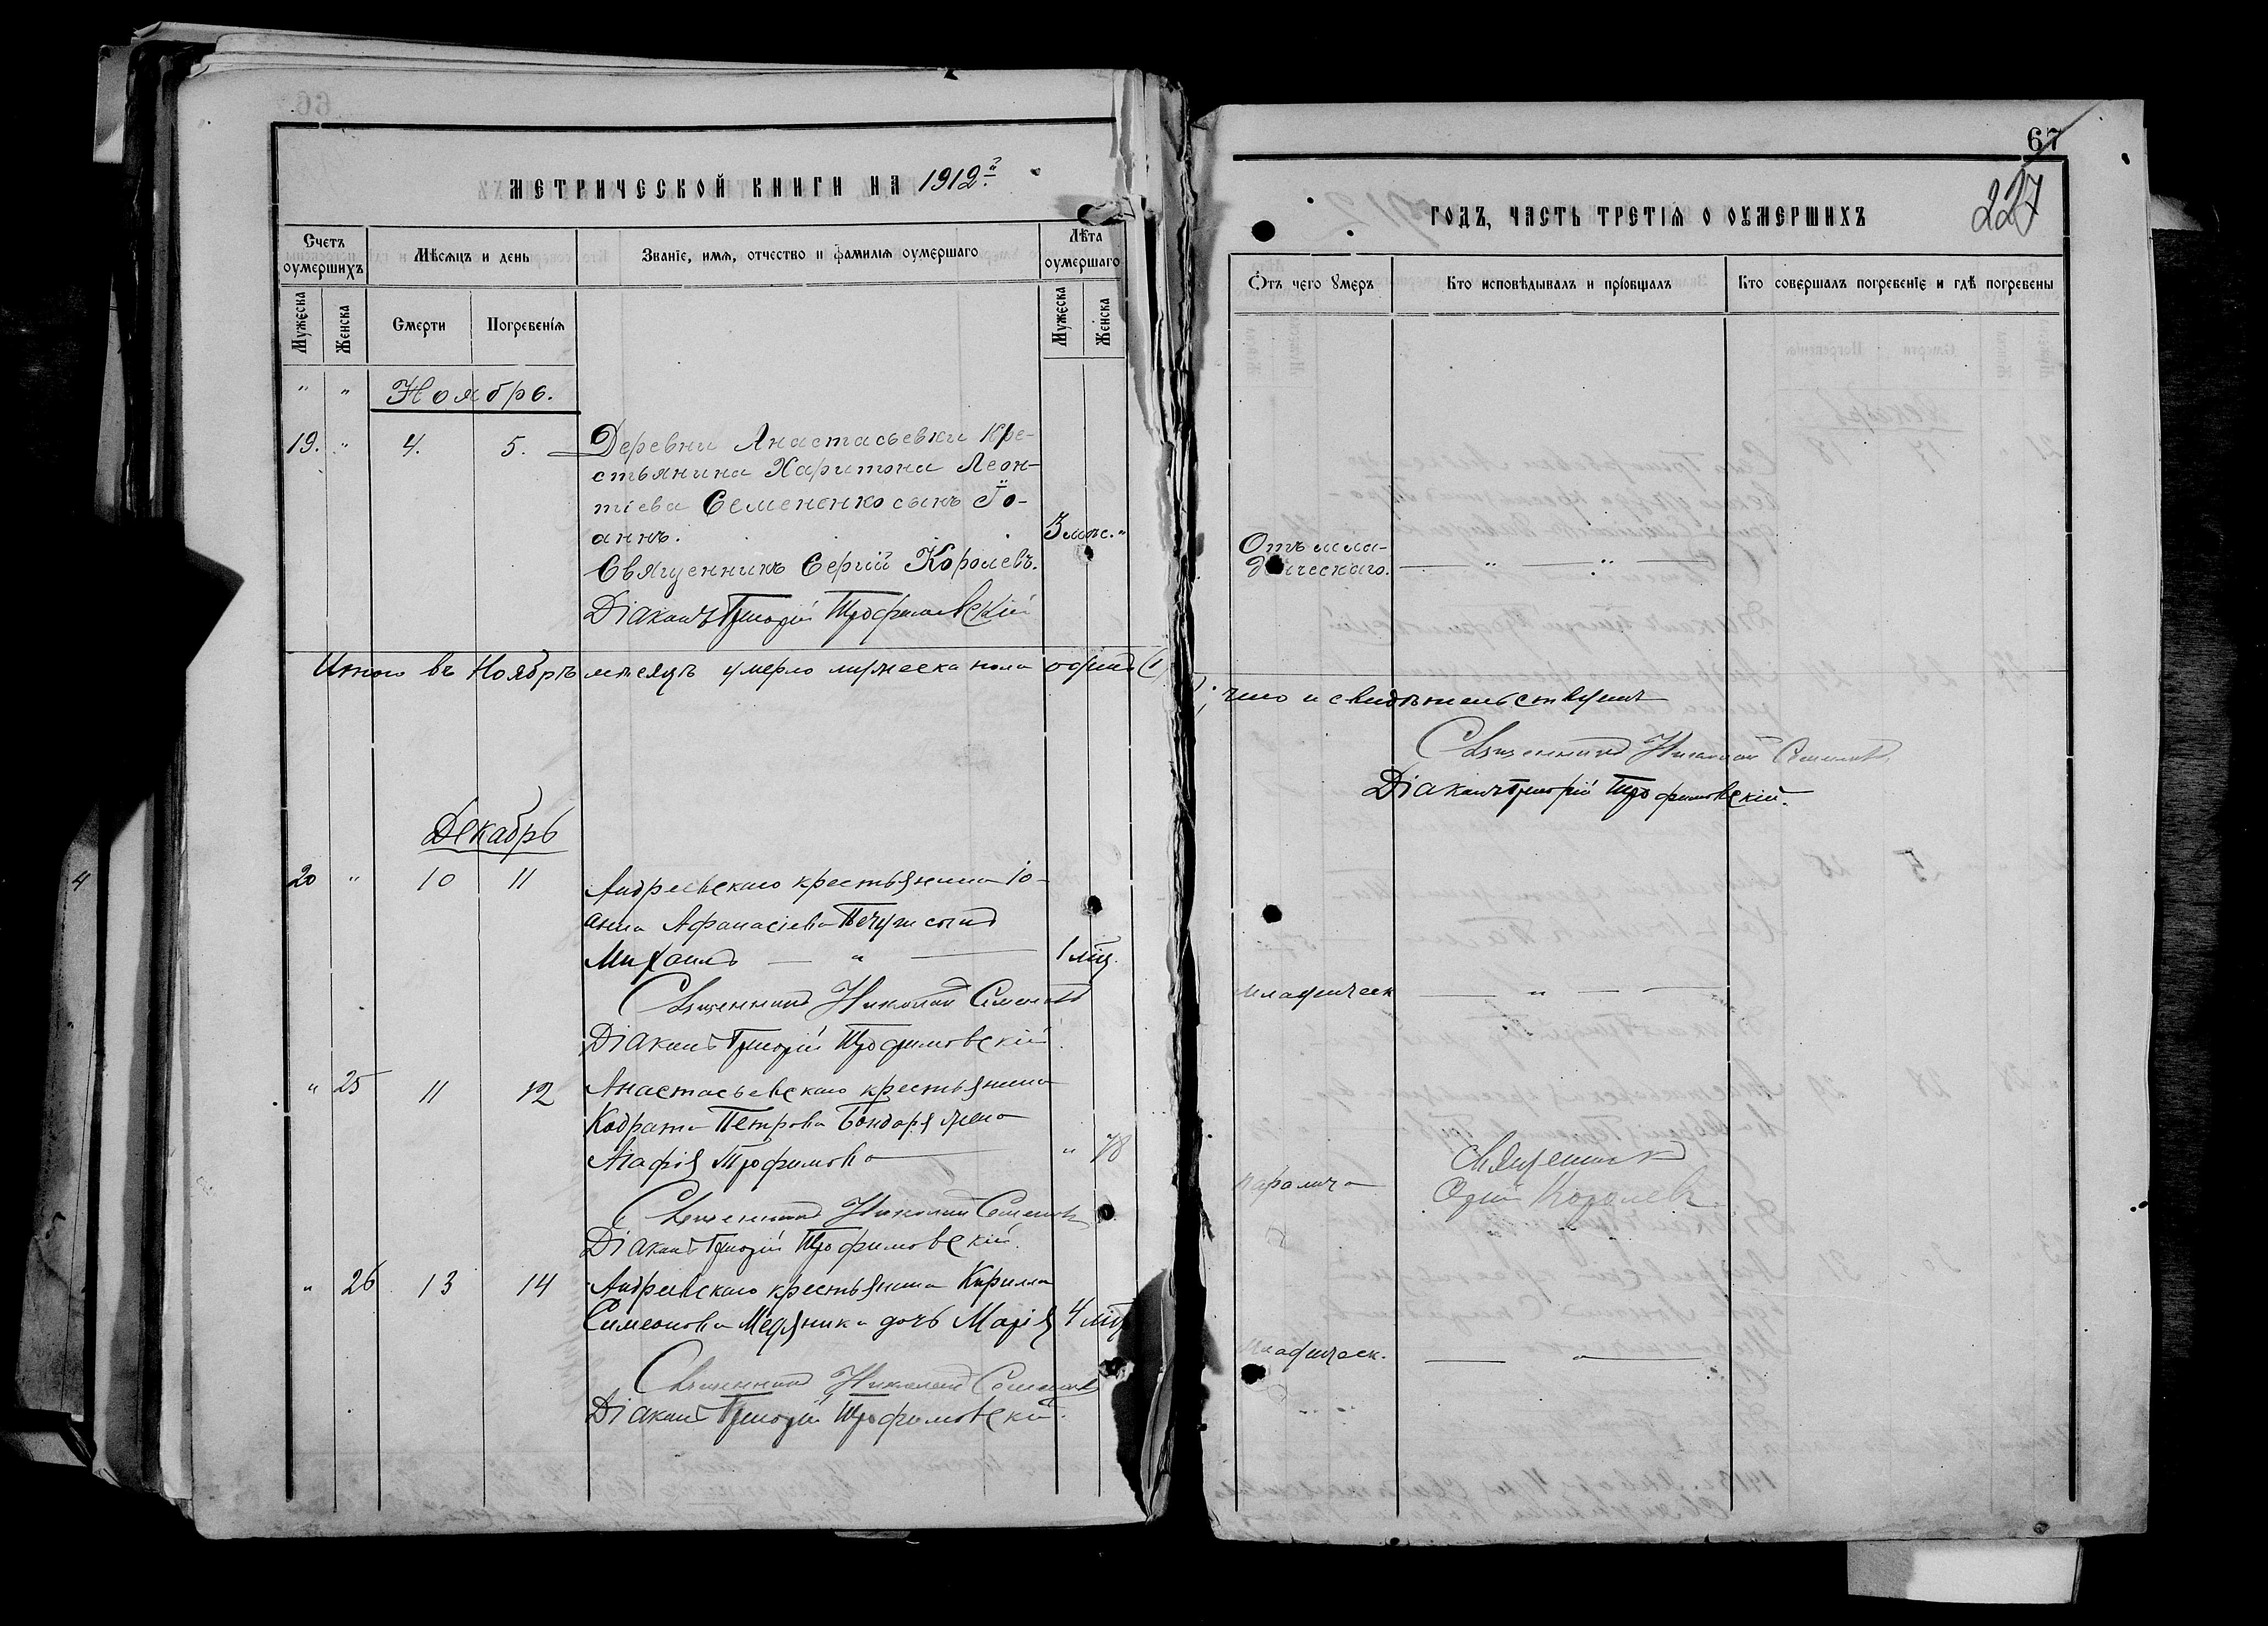 МЕТРИЧЕСКОЙ КНИГИ НА 1912
Счетъ оумершихъ
Мѣсяцъ и день
Званіе, имя, отчество и фамилія оумершаго
Лѣта оумершаго
Мужеска
Женска
Смерти
Погребенія
Мужеска
Женска
" " Ноябрь.
19. " 4. 5. Деревни Анастасьевки Кре-
стьянина Харитона Леон-
тіева Семененко сынъ Іо-
аннъ. 3 мѣс. "
Священникъ Сергій Королевъ.
Діаконъ Григорій Трофимовскій
Итого въ Ноябрѣ мѣсяцѣ умерло мужеска пола одинъ (1)
Декабрь
20 " 10 11 Андреевскаго крестьянина Іо-
анна Афанасіева сынъ
Михаилъ — " — 1 мѣс.
Священникъ Николай Семеновъ
Діаконъ Григорій Трофимовскій.
" 25 11 12 Анастасьевскаго крестьянина
Кодрата Петрова жена
Агафія Трофимова — " 78
Священникъ Николай Семеновъ
Діаконъ Григорій Трофимовскій.
" 26 13 14 Андреевскаго крестьянина Кирилла
Симеонова Медяника дочь Марія 4 мѣс
Священникъ Николай Семеновъ
Діаконъ Григорій Трофимовскій.
67
227
ГОДЪ, ЧАСТЬ ТРЕТІЯ О ОУМЕРШИХЪ
Отъ чего умеръ
Кто исповѣдывалъ и пріобщалъ
Кто совершалъ погребеніе и гдѣ погребены
Отъ мла-
денческаго. — " — " —
; что и свидѣтельствуемъ
Священникъ Николай Семеновъ
Діаконъ Григорій Трофимовскій.
младенческ — " — —
паралича
Священникъ
Королевъ.
младенческ. — " —